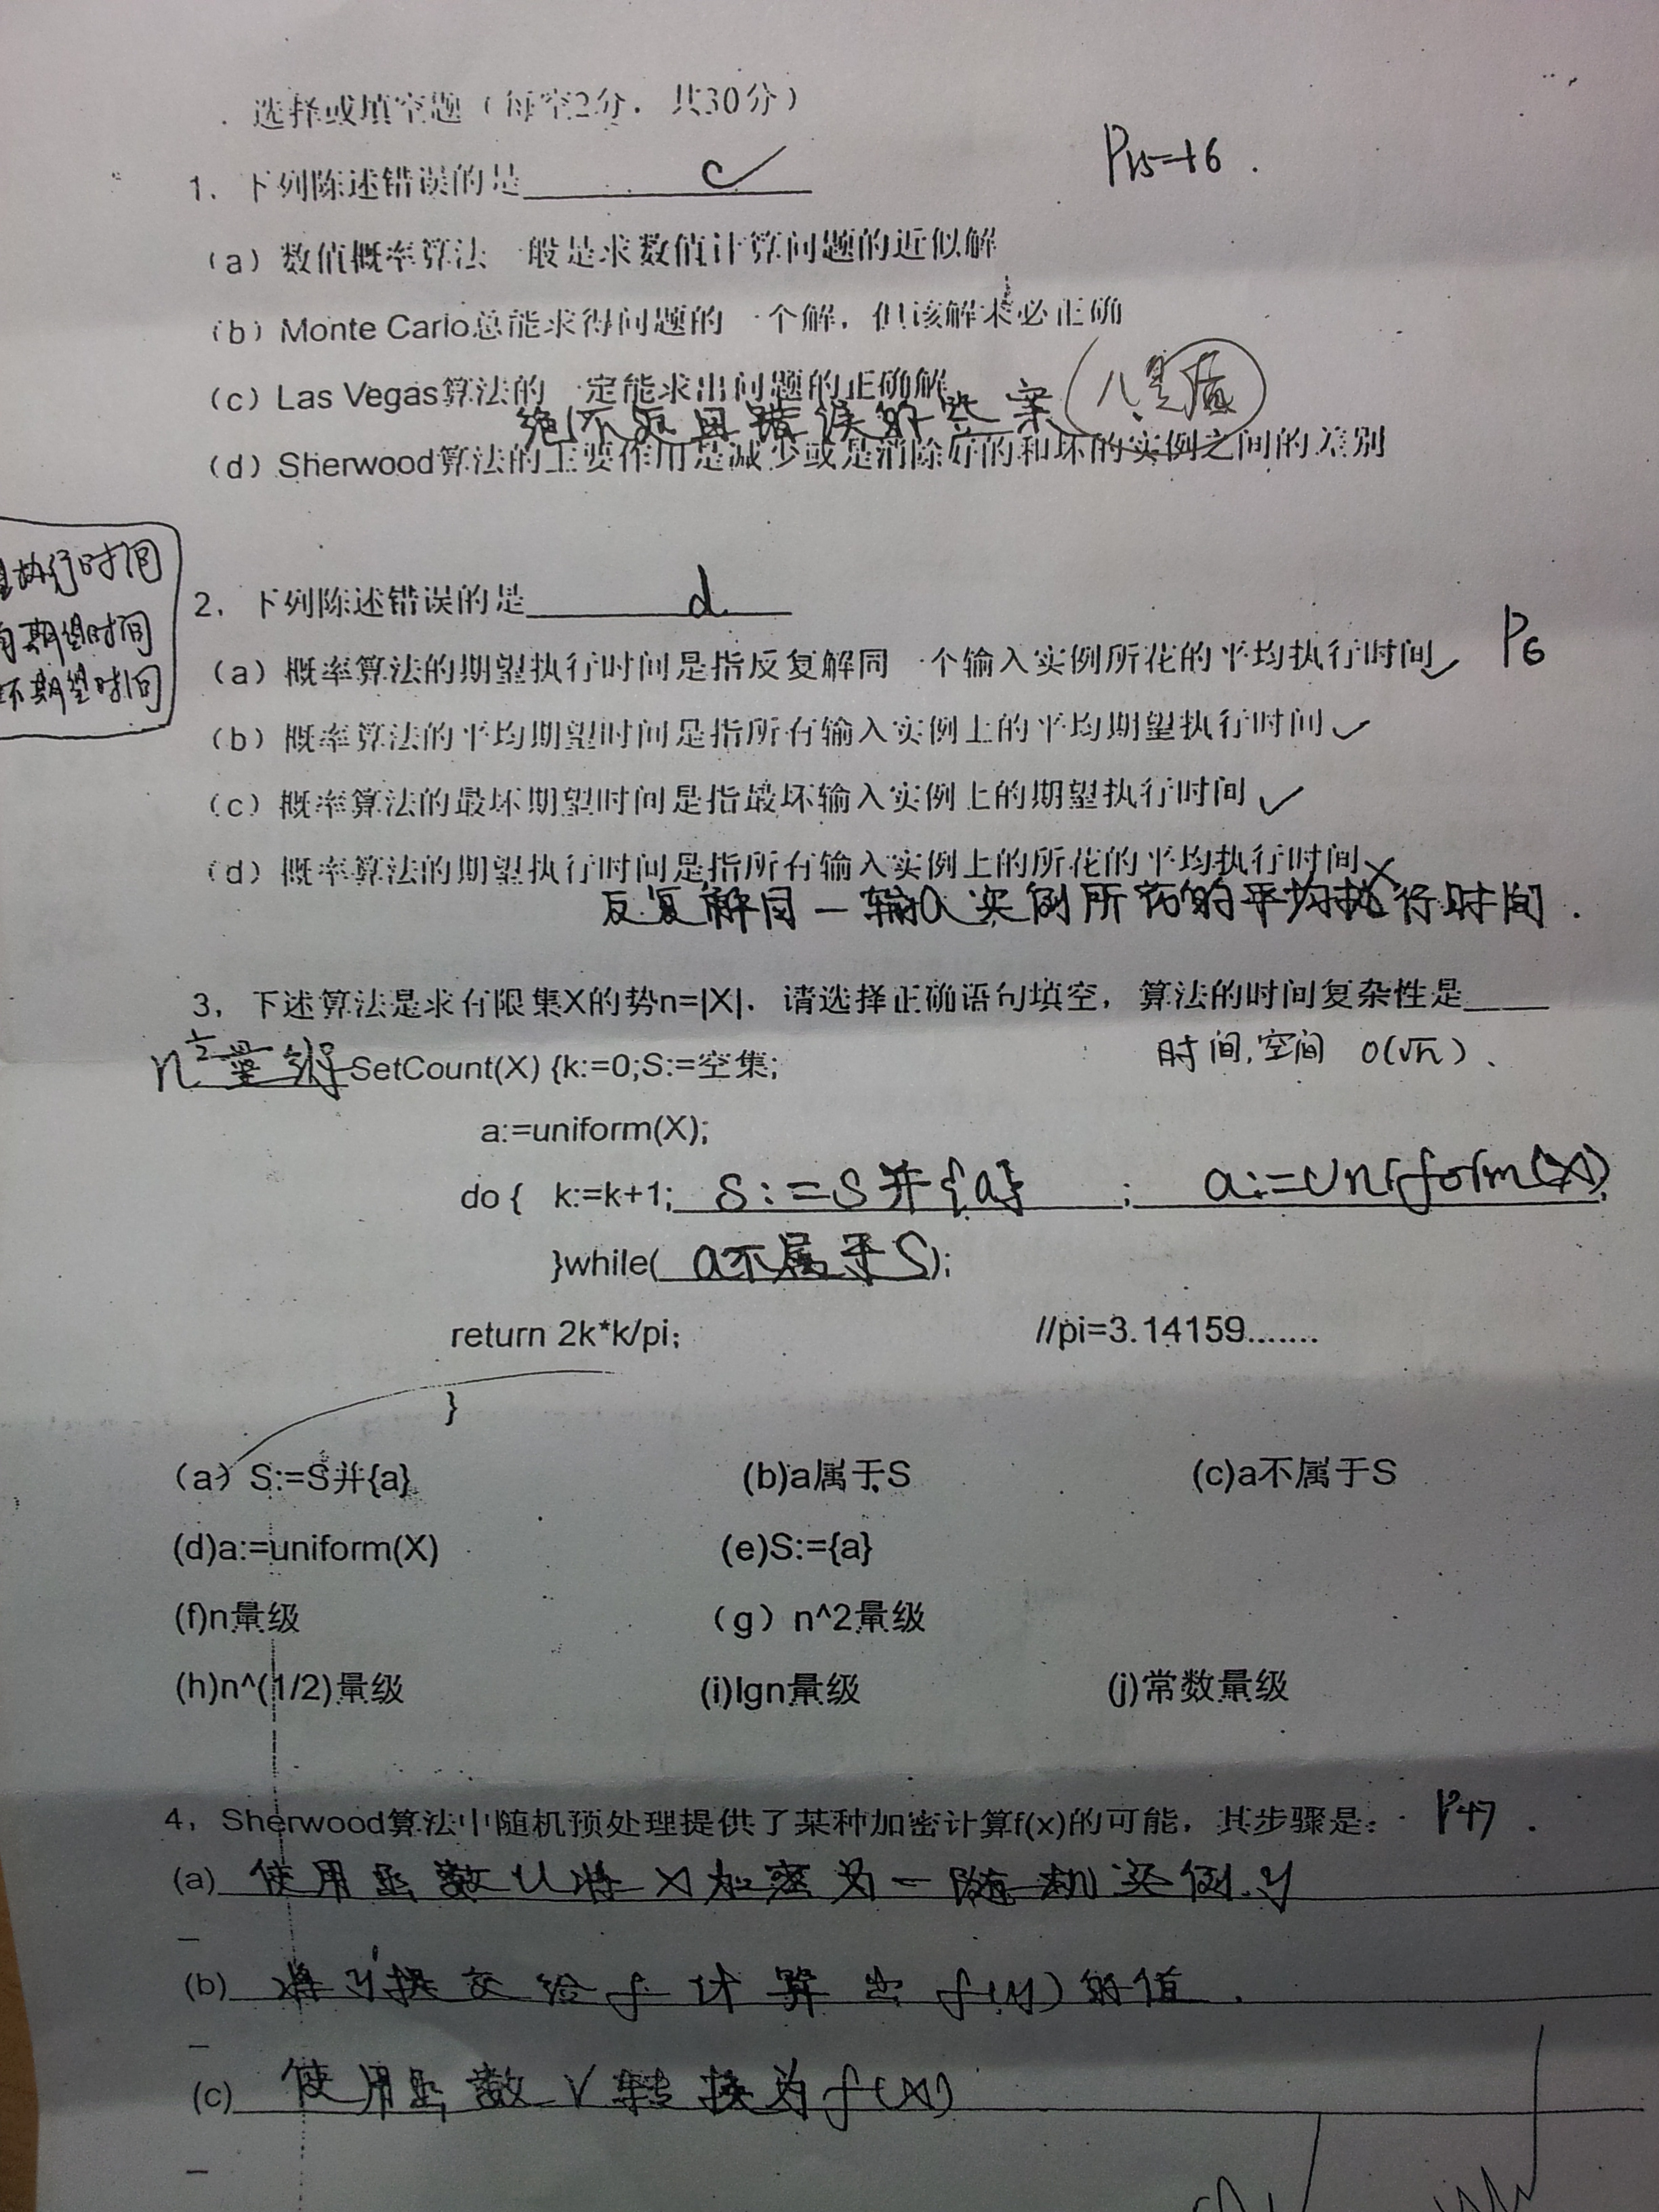 选择或填空题（每空2分，共30分）
1，下列陈述错误的是 c P15-16.
（a）数值概率算法一般是求数值计算问题的近似解
（b）Monte Carlo总能求得问题的一个解，但该解未必正确
（c）Las Vegas算法的一定能求出问题的正确解
绝不返回错误的答案（八皇后）
（d）Sherwood算法的主要作用是减少或是消除好的和坏的实例之间的差别
执行时间
期望时间
坏期望时间
2，下列陈述错误的是 d
（a）概率算法的期望执行时间是指反复解同一个输入实例所花的平均执行时间✓ P6
（b）概率算法的平均期望时间是指所有输入实例上的平均期望执行时间✓
（c）概率算法的最坏期望时间是指最坏输入实例上的期望执行时间✓
（d）概率算法的期望执行时间是指所有输入实例上的所花的平均执行时间×
反复解同一输入实例所花的平均执行时间.
3，下述算法是求有限集X的势n=|X|. 请选择正确语句填空，算法的时间复杂性是
n^½量级 SetCount(X) {k:=0;S:=空集; 时间,空间 O(√n)、
a:=uniform(X);
do { k:=k+1; S:=S并{a} ; a:=uniform(X);
}while( a不属于S);
return 2k*k/pi; //pi=3.14159.......
}
（a）S:=S并{a} (b)a属于S (c)a不属于S
(d)a:=uniform(X) (e)S:={a}
(f)n量级 （g）n^2量级
(h)n^(1/2)量级 (i)lgn量级 (j)常数量级
4，Sherwood算法中随机预处理提供了某种加密计算f(x)的可能，其步骤是： P47.
(a) 使用函数u将x加密为一随机实例y
(b) 将y提交给f计算出f(y)的值.
(c) 使用函数v转换为f(x)